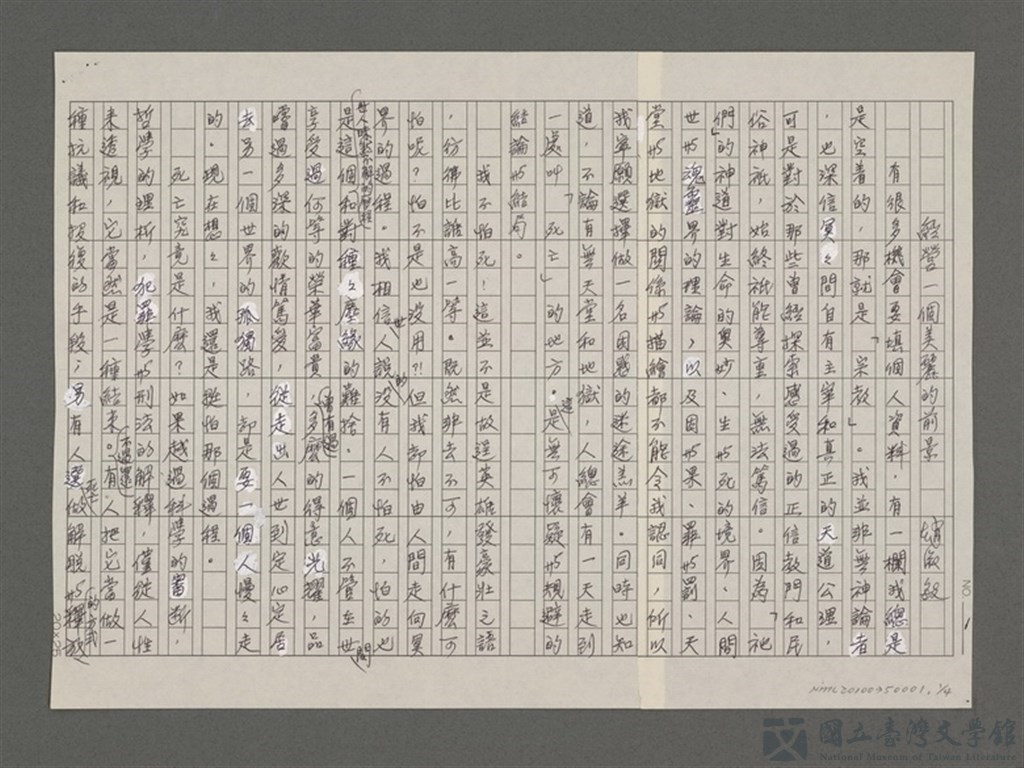 經營一個美麗的前景　趙
有很多機會要填個人資料，有一欄我總是
是空着的，那就是「宗教」。我並非無神論者
，也深信冥々間自有主宰和真正的天道公理，
可是對於那些曾經探索感受過的正信教門和民
俗神祇，始終祇能尊重，無法篤信。因為「祂
們」的神道對生命的奧妙、生與死的境界、人間
世與魂靈界的理論，以及因與果、罪與罰、天
堂與地獄的關係與描繪都不能令我認同，所以
我寧願選擇做一名困惑的迷途羔羊。同時也知
道，不論有無天堂和地獄，人人總會有一天走到
一處叫「死亡」的地方。這是無可懷疑與規避的
結論與結局。
我不怕死！這並不是故逞英雄發豪壯之語
，彷彿比誰高一等。既然非去不可，有什麼可
怕呢？怕不是也沒用?!但我卻怕由人間走向冥
界的過程。我相信世人說的沒有人不怕死，怕的也
是這個世人昧然不解的歷程和對種々塵緣的難捨。一個人不管在世間
享受過何等的榮華富貴，曾有過多麼的得意光耀，品
嚐過多深的歡情篤愛，從走出人世到定心定居
去另一個世界的孤獨路，卻是要一個人慢々走
的。現在想々，我還是挺怕那個過程。
死亡究竟是什麼？如果越過科學的審斷，
哲學的理析，犯罪學與刑法的解釋，僅從人性
來透視，它當然是一種結束。不過還有人把它當做一
種抗議和報復的手段；另有人選死做解脫與釋放的方式
20×25
NO. 1
NMTL20100350001, 1/4
國立臺灣文學館
National Museum of Taiwan Literature